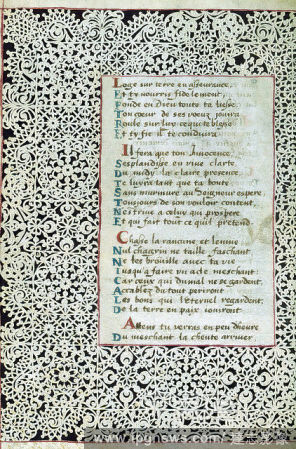 Loge sur terre en asseurance,
Et ty nourris fidelement,
Fonde en Dieu toute ta liesse
Ton coeur de ses voeuz jouira
Roule sur luy ce qui te blesse
Et ty fie il te conduira
Il fera que ton Innocence
Resplandisse en vive clarte,
Du midy la claire presence
Te luyra tant que ta
Sans murmure au Seigneur espere
Tousjours de son vouloir content
Nestrive a celuy qui prospere
Et qui fait tout ce quil pretend.
Chasse la rancune et lenvie
Nul chagrin ne taille faschant
Ne te brouille avec ta vie
Jusqu'a faire un acte meschant:
Car ceux qui du mal ne se gardent,
Acablez du tout periront
Les bons qui l'Eternel regardent,
De la terre en paix jouiront
Attens tu verras en peu dheure
Du meschant la cheute arriver,
www.ipgnews.com